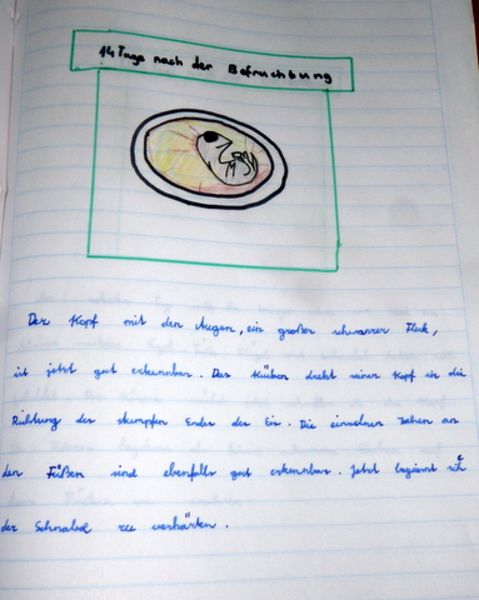 14 Tage nach der Befruchtung
Der Kopf mit den Augen, ein großer schwarzer Fleck,
ist jetzt gut erkennbar. Das Küken dreht seinen Kopf in die
Richtung des stumpfen Endes des Eis. Die einzelnen Zehen an
den Füßen sind ebenfalls gut erkennbar. Jetzt beginnt sich
der Schnabel zu verhärten.